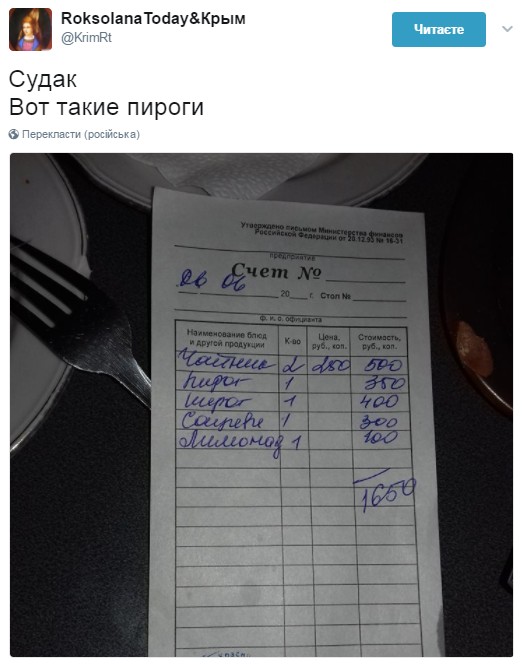 RoksolanaToday&Крым
@KrimRt
Читаєте
Судак
Вот такие пироги
Перекласти (російська)
Утверждено письмом Министерства финансов
Российской Федерации от 20.12.93 № 16-31
предприятие
Счет №
06
20 г. Стол №
ф. и. о. официанта
Наименование блюд и другой продукции К-во Цена, руб., коп. Стоимость, руб., коп.
Чайник 2 250 500
Пирог 1 350
пирог 1 400
1 300
Лимонад 1 100
1650